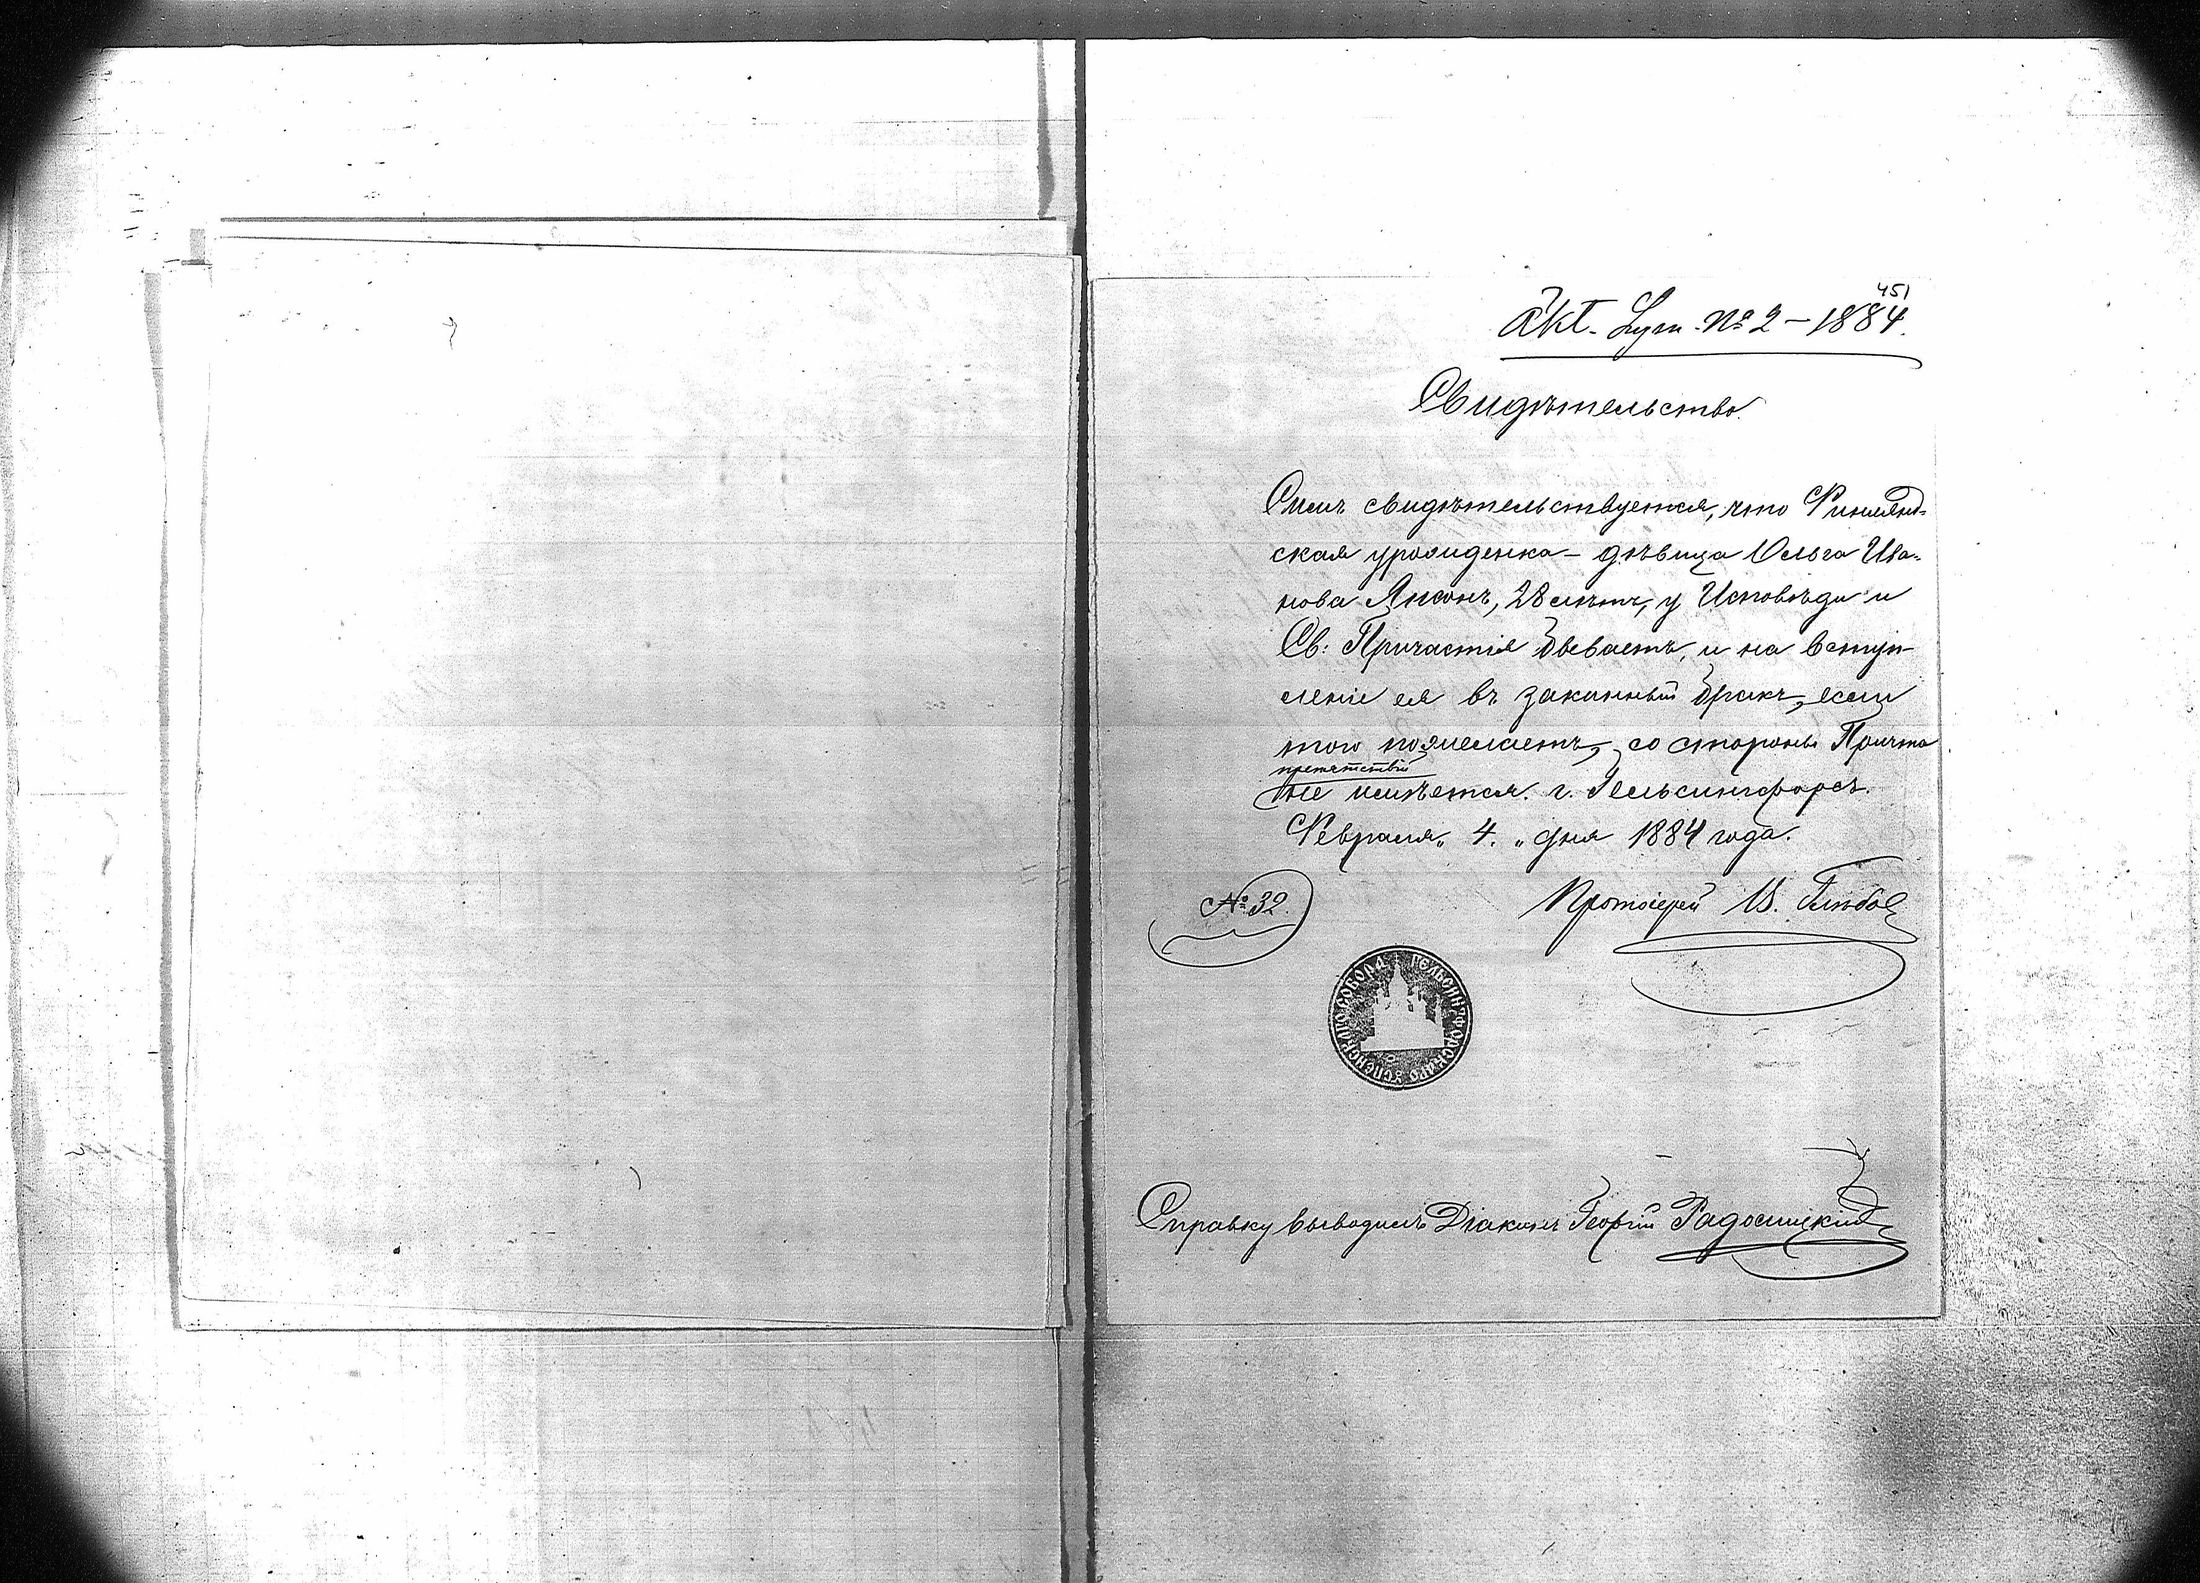 451
Akt. Lym. № 2 – 1884.
Свидѣтельство.
Симъ свидѣтельствуется, что Финлянд-
ская уроженка – дѣвица Ольга Ива-
нова Янсонъ, 28 лѣтъ, у Исповѣди и
Св: Причастія бываетъ, и на вступ-
леніе ея въ законный бракъ, если
того пожелаетъ, со стороны Причта
препятствій
не имѣется. г. Гельсингфорсъ.
Февраля „ 4. „ дня 1884 года.
№ 32.
Протоіерей
ГЕЛЬСИНГФОРСКАГО УСПЕНСКАГО СОБОРА
Справку выводилъ Діаконъ Георгій Радосицкій